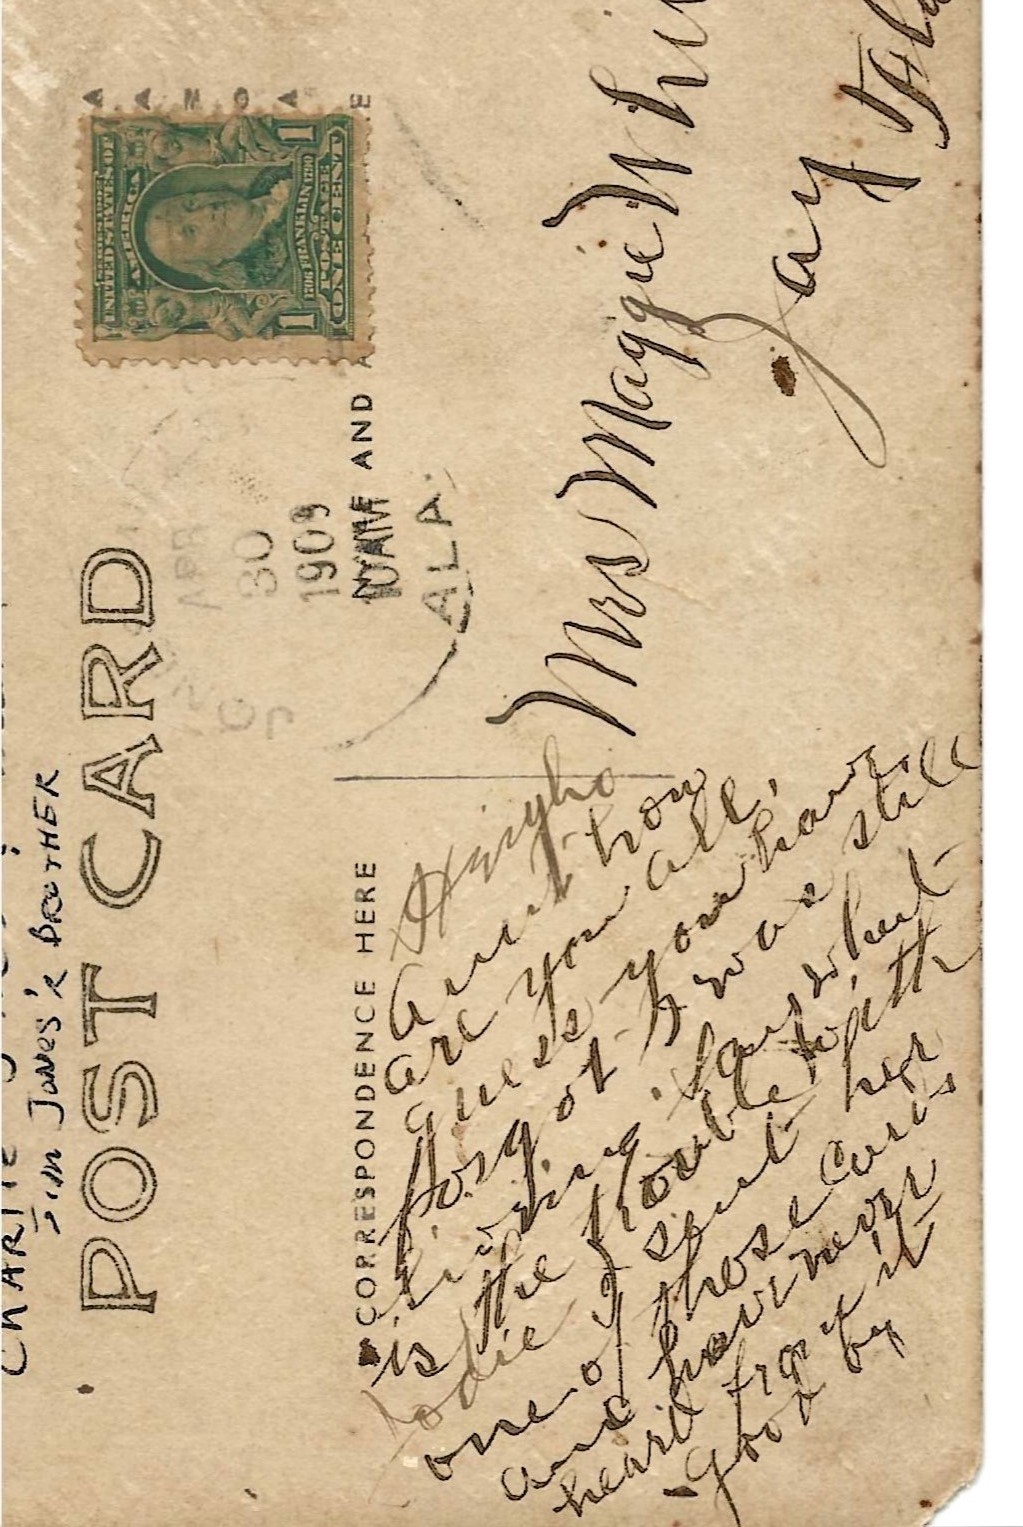 CHARLIE JONES
JIM JONES'S BROTHER
POST CARD
CORRESPONDENCE HERE
AND
UNITED STATES OF
AMERICA
1706 FRANKLIN 1790
POSTAGE
1 ONE CENT 1
APR
30
1909
10 AM
ALA.
aunt how
are you all,
guess you have
forgot I was still
living. Say what
is the trouble with
Jodie I sent her
one of those cards
and have never
heard from it
good by
Mrs Maggie Whi
Jay Fla